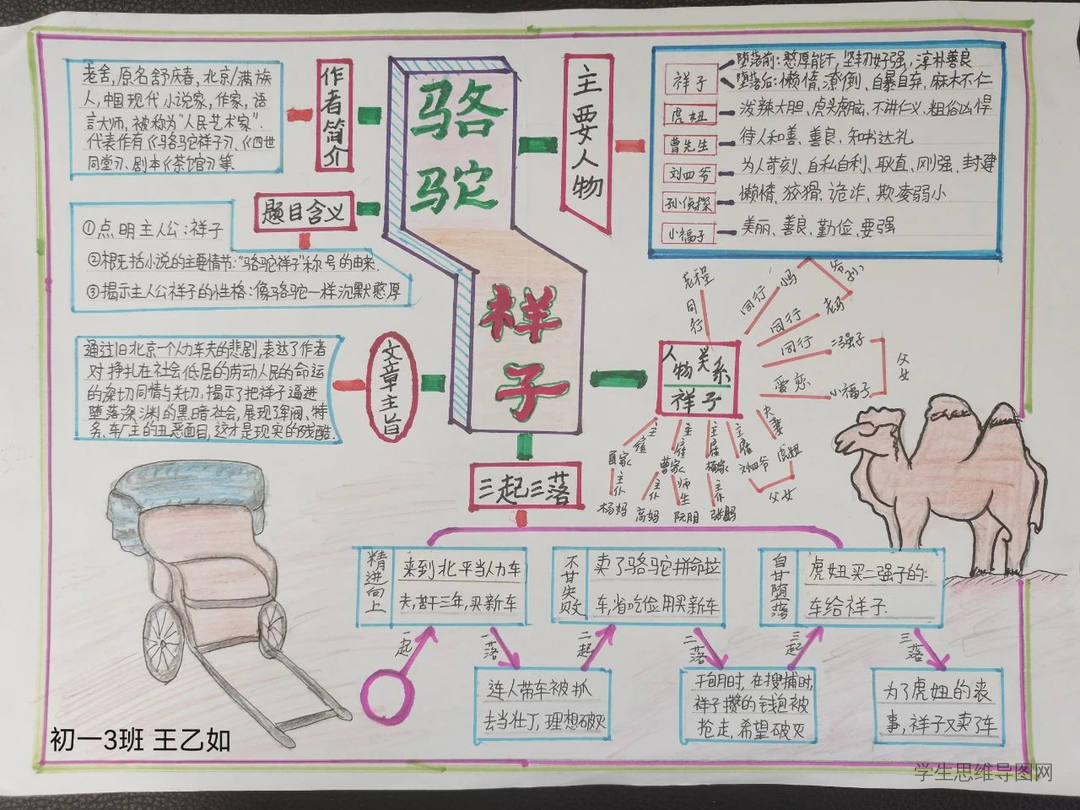 骆
驼
祥
子
作者简介
老舍，原名舒庆春，北京/满族
人，中国现代小说家，作家，语
言大师，被称为“人民艺术家”.
代表作有《骆驼祥子》、《四世
同堂》、剧本《茶馆》等.
题目含义
①点明主人公：祥子
②概括小说的主要情节：“骆驼祥子”称号的由来.
③揭示主人公祥子的性格：像骆驼一样沉默憨厚
文章主旨
通过旧北京一个人力车夫的悲剧，表达了作者
对挣扎在社会低层的劳动人民的命运
的深切同情与关切，揭示了把祥子逼进
堕落深渊的黑暗社会，展现了军阀、特
务、车厂主的丑恶面目，这才是现实的残酷.
主要人物
祥子
堕落前：憨厚能干，坚韧好强，淳朴善良
堕落后：懒惰，潦倒，自暴自弃，麻木不仁
虎妞
泼辣大胆、虎头虎脑、不讲仁义、粗俗凶悍
曹先生
待人和善、善良、知书达礼
刘四爷
为人苛刻、自私自利、耿直、刚强、封建
孙侦探
懒惰、狡猾、诡诈、欺凌弱小
小福子
美丽、善良、勤俭、要强
人物关系
祥子
老程
同行
同行
小马
爷孙
同行
老马
同行
二强子
恋恋
小福子
父女
夫妻
虎妞
主雇
刘四爷
父女
主雇
杨家
主仆
张妈
主雇
曹家
主仆
高妈
师生
阮明
主雇
夏家
主仆
杨妈
三起三落
精进向上
来到北平当人力车
夫，苦干三年，买新车
不甘失败
卖了骆驼拼命拉
车，省吃俭用买新车
自甘堕落
虎妞买二强子的
车给祥子.
一起
一落
二起
二落
三起
三落
连人带车被抓
去当壮丁，理想破灭
干包月时，在搜捕时，
祥子攒的钱包被
抢走，希望破灭
为了虎妞的丧
事，祥子又卖了车
初一3班 王乙如
学生思维导图网